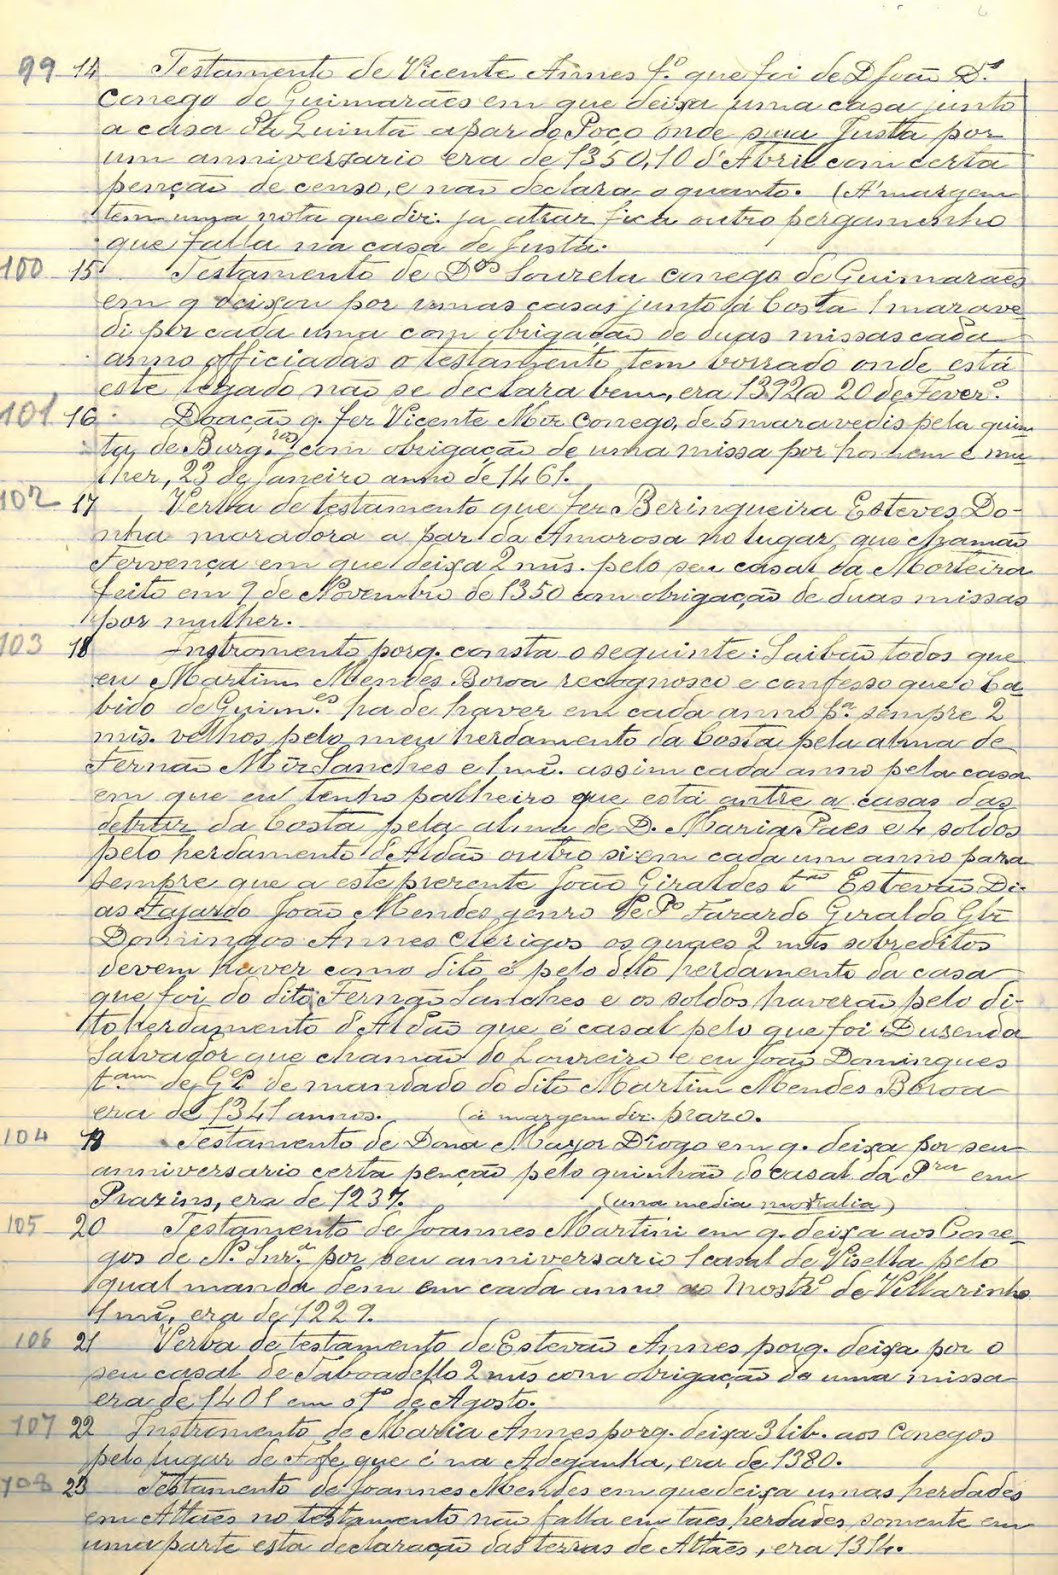 99 14 Testamento de Vicente Annes f.º que foi de D João D.s
Conego de Guimarães em que deixa uma casa junto
a casa da Quintã a par do Poço onde sua Justa por
um anniversario era de 1350, 10 d'Abril com certa
penção de censo, e não declara o quanto. (Á margem
tem uma nota que diz: ja atraz fica outro pergaminho
que falla na casa de Justa.
100 15 Testamento de D.os Lourela conego de Guimarães
em q deixou por umas casas junto á Costa 1 marave-
di por cada uma com obrigação de duas missas cada
anno officiadas o testamento tem borrado onde está
este legado não se declara bem, era 1392 a 20 de Fever.º
101 16 Doação q. fez Vicente Miz Conego, de 5 maravedis pela quin-
ta de Burg. com obrigação de uma missa por homem e mu-
lher, 23 de Janeiro anno de 1461.
102 17 Verba de testamento que fez Beringueira Esteves Do-
nha moradora a par da Amorosa no lugar, que chamão
Fervença em que deixa 2 mis. pelo seu casal da Morteira
feito em 9 de Novembro de 1350 com obrigação de duas missas
por mulher.
103 18 Instromento porq. consta o seguinte: Saibão todos que
eu Martim Mendes Boroa recognosco e confesso que o Ca-
bido de Guim.es ha de haver em cada anno p.a sempre 2
mis. velhos pelo meu herdamento da Costa pela alma de
Fernão Miz Sanches e 1 mi. assim cada anno pela casa
em que eu tenho palheiro que está antre a casas das
da Costa pela alma de D. Maria Paes e 4 soldos
pelo herdamento d'Aldão outro si em cada um anno para
sempre que a este prezente João Giraldes t.am Estevão Di-
as Fajardo João Mendes genro de P.º Farardo Geraldo Glz
Domingos Annes Clérigos os quaes 2 mis sobreditos
devem haver como dito é pelo dito herdamento da casa
que foi do dito Fernão Sanches e os soldos haverão pelo di-
to herdamento d'Aldão que é casal pelo que foi Dusenda
Salvador que chamão do Loureiro e eu João Domingues
t.am de G.es de mandado do dito Martim Mendes Boroa
era de 1341 annos. (á margem diz: prazo.
104 19 Testamento de Dona Mayor Diogo em q. deixa por seu
anniversario certa penção pelo quinhão do casal da P.ra em
Prazins, era de 1237. (una media mortalia)
105 20 Testamento de Joannes Martini em q. deixa aos Cone-
gos de N. Snr.a por seu anniversario 1 casal de Visella pelo
qual manda dem em cada anno ao Mostr.º de Villarinho
1 mi, era de 1229.
106 21 Verba de testamento de Estevão Annes porq. deixa por o
seu casal de Taboadello 2 mis com obrigação de uma missa
era de 1401 em 1º de Agosto.
107 22 Instromento de Maria Annes porq. deixa 3 lib. aos Conegos
pelo lugar de Affe que é na Adeganha, era de 1380.
108 23 Testamento de Joannes Mendes em que deixa umas herdades
em Attães no testamento não falla em taes herdades somente em
uma parte esta declaração das terras de Attaẽs, era 1314.